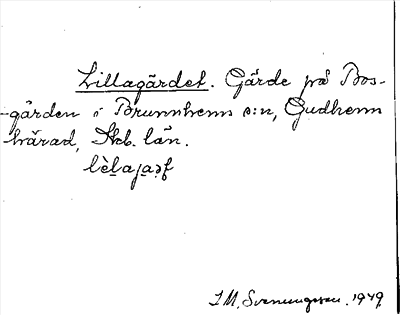 Lillagärdet. Gärde på Bos-
-gården i Brunnhems s:n, Gudhems
härad, Skb. län.
I M, Svenungsson. 1949.